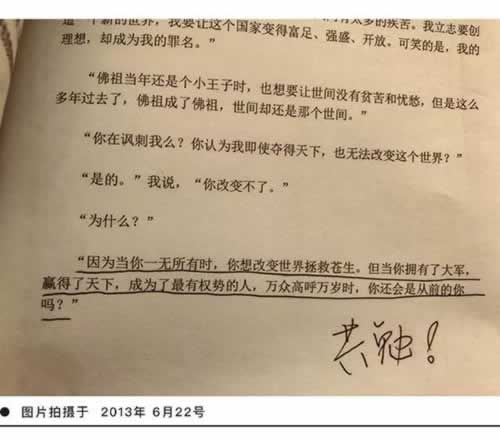 造一个新的世界，我要让这个国家变得富足、强盛、开放。可笑的是，我的
理想，却成为我的罪名。”
“佛祖当年还是个小王子时，也想要让世间没有贫苦和忧愁，但是这么
多年过去了，佛祖成了佛祖，世间却还是那个世间。”
“你在讽刺我么？你认为我即使夺得天下，也无法改变这个世界？”
“是的。”我说，“你改变不了。”
“为什么？”
“因为当你一无所有时，你想改变世界拯救苍生。但当你拥有了大军，
赢得了天下，成为了最有权势的人，万众高呼万岁时，你还会是从前的你
吗？”
共勉！
● 图片拍摄于 2013年 6月22号